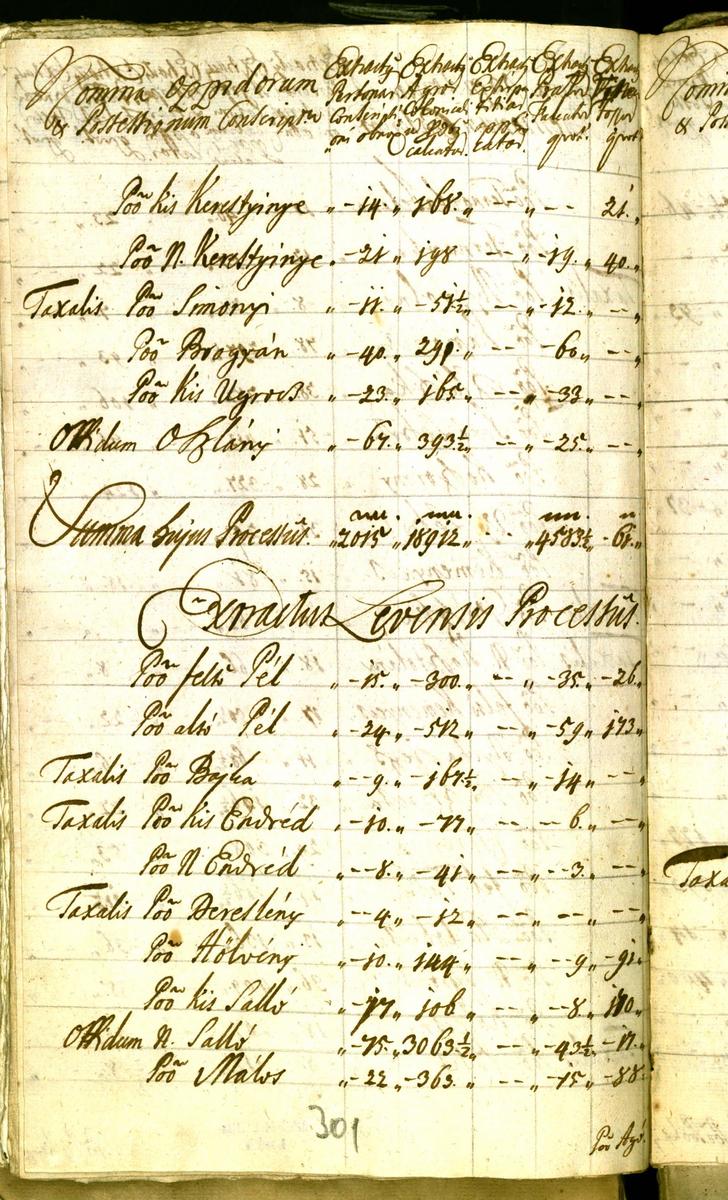 Nomina Oppidorum
& Possessionum Conscriptar
Extractus Personar Conscripti
Extractus Agror Colonical calcatur.
Extract extirpa titiar
Extract Prator Falcator
Extract
Poss Kis Keresztyinye „ - 14. „ 168. „ - - „ - - 21. „
Poss N. Keresztyinye „ - 21 „ 198 - - „ - 19. „ 40. „
Taxalis Poss Simonyi „ - 11. „ - 51½ „ - - „ - 12. „ - - „
Poss Brogyán „ - 40. „ 291. „ - - - 60 „ - - „
Poss Kis Ugrocz „ - 23. „ 165. „ - - „ - 33 „ - - „
Oppidum Oszlány „ - 67. „ 393½ „ - - „ - 25. „ - - „
Summa hujus Processus. „ 2015 „ 18912 „ „ 4583½ „ 61. „
Extractus Levensis Processus.
Poss felső Pél „ - 15. „ - 300. „ - - „ - 35. „ - 26. „
Poss alsó Pél „ - 24. „ - 512 „ - - „ - 59 „ 173 „
Taxalis Poss Bajka „ - - 9. „ - 167½ „ - - „ - 14 „ - - „
Taxalis Poss Kis Endréd „ - 10. „ - 77 „ - - - - 6. „ - - „
Poss N Endréd „ - - 8. „ - 41 „ - - - - 3. „ - - „
Taxalis Poss Dereslény „ - - 4. „ - 12 „ - - „ - - „ - - „
Poss Hölvény „ - 10. „ 144 „ - - „ - - 9 „ - 91 „
Poss Kis Salló „ - 17 „ 106 „ - - „ - - 8. „ 110. „
Oppidum N. Salló „ - 75. „ 3063½ „ - - „ - 43½ „ - 17. „
Poss Málos „ - 22 „ - 363. „ - - „ - 15 „ - 88. „
301
Poss
Taxa